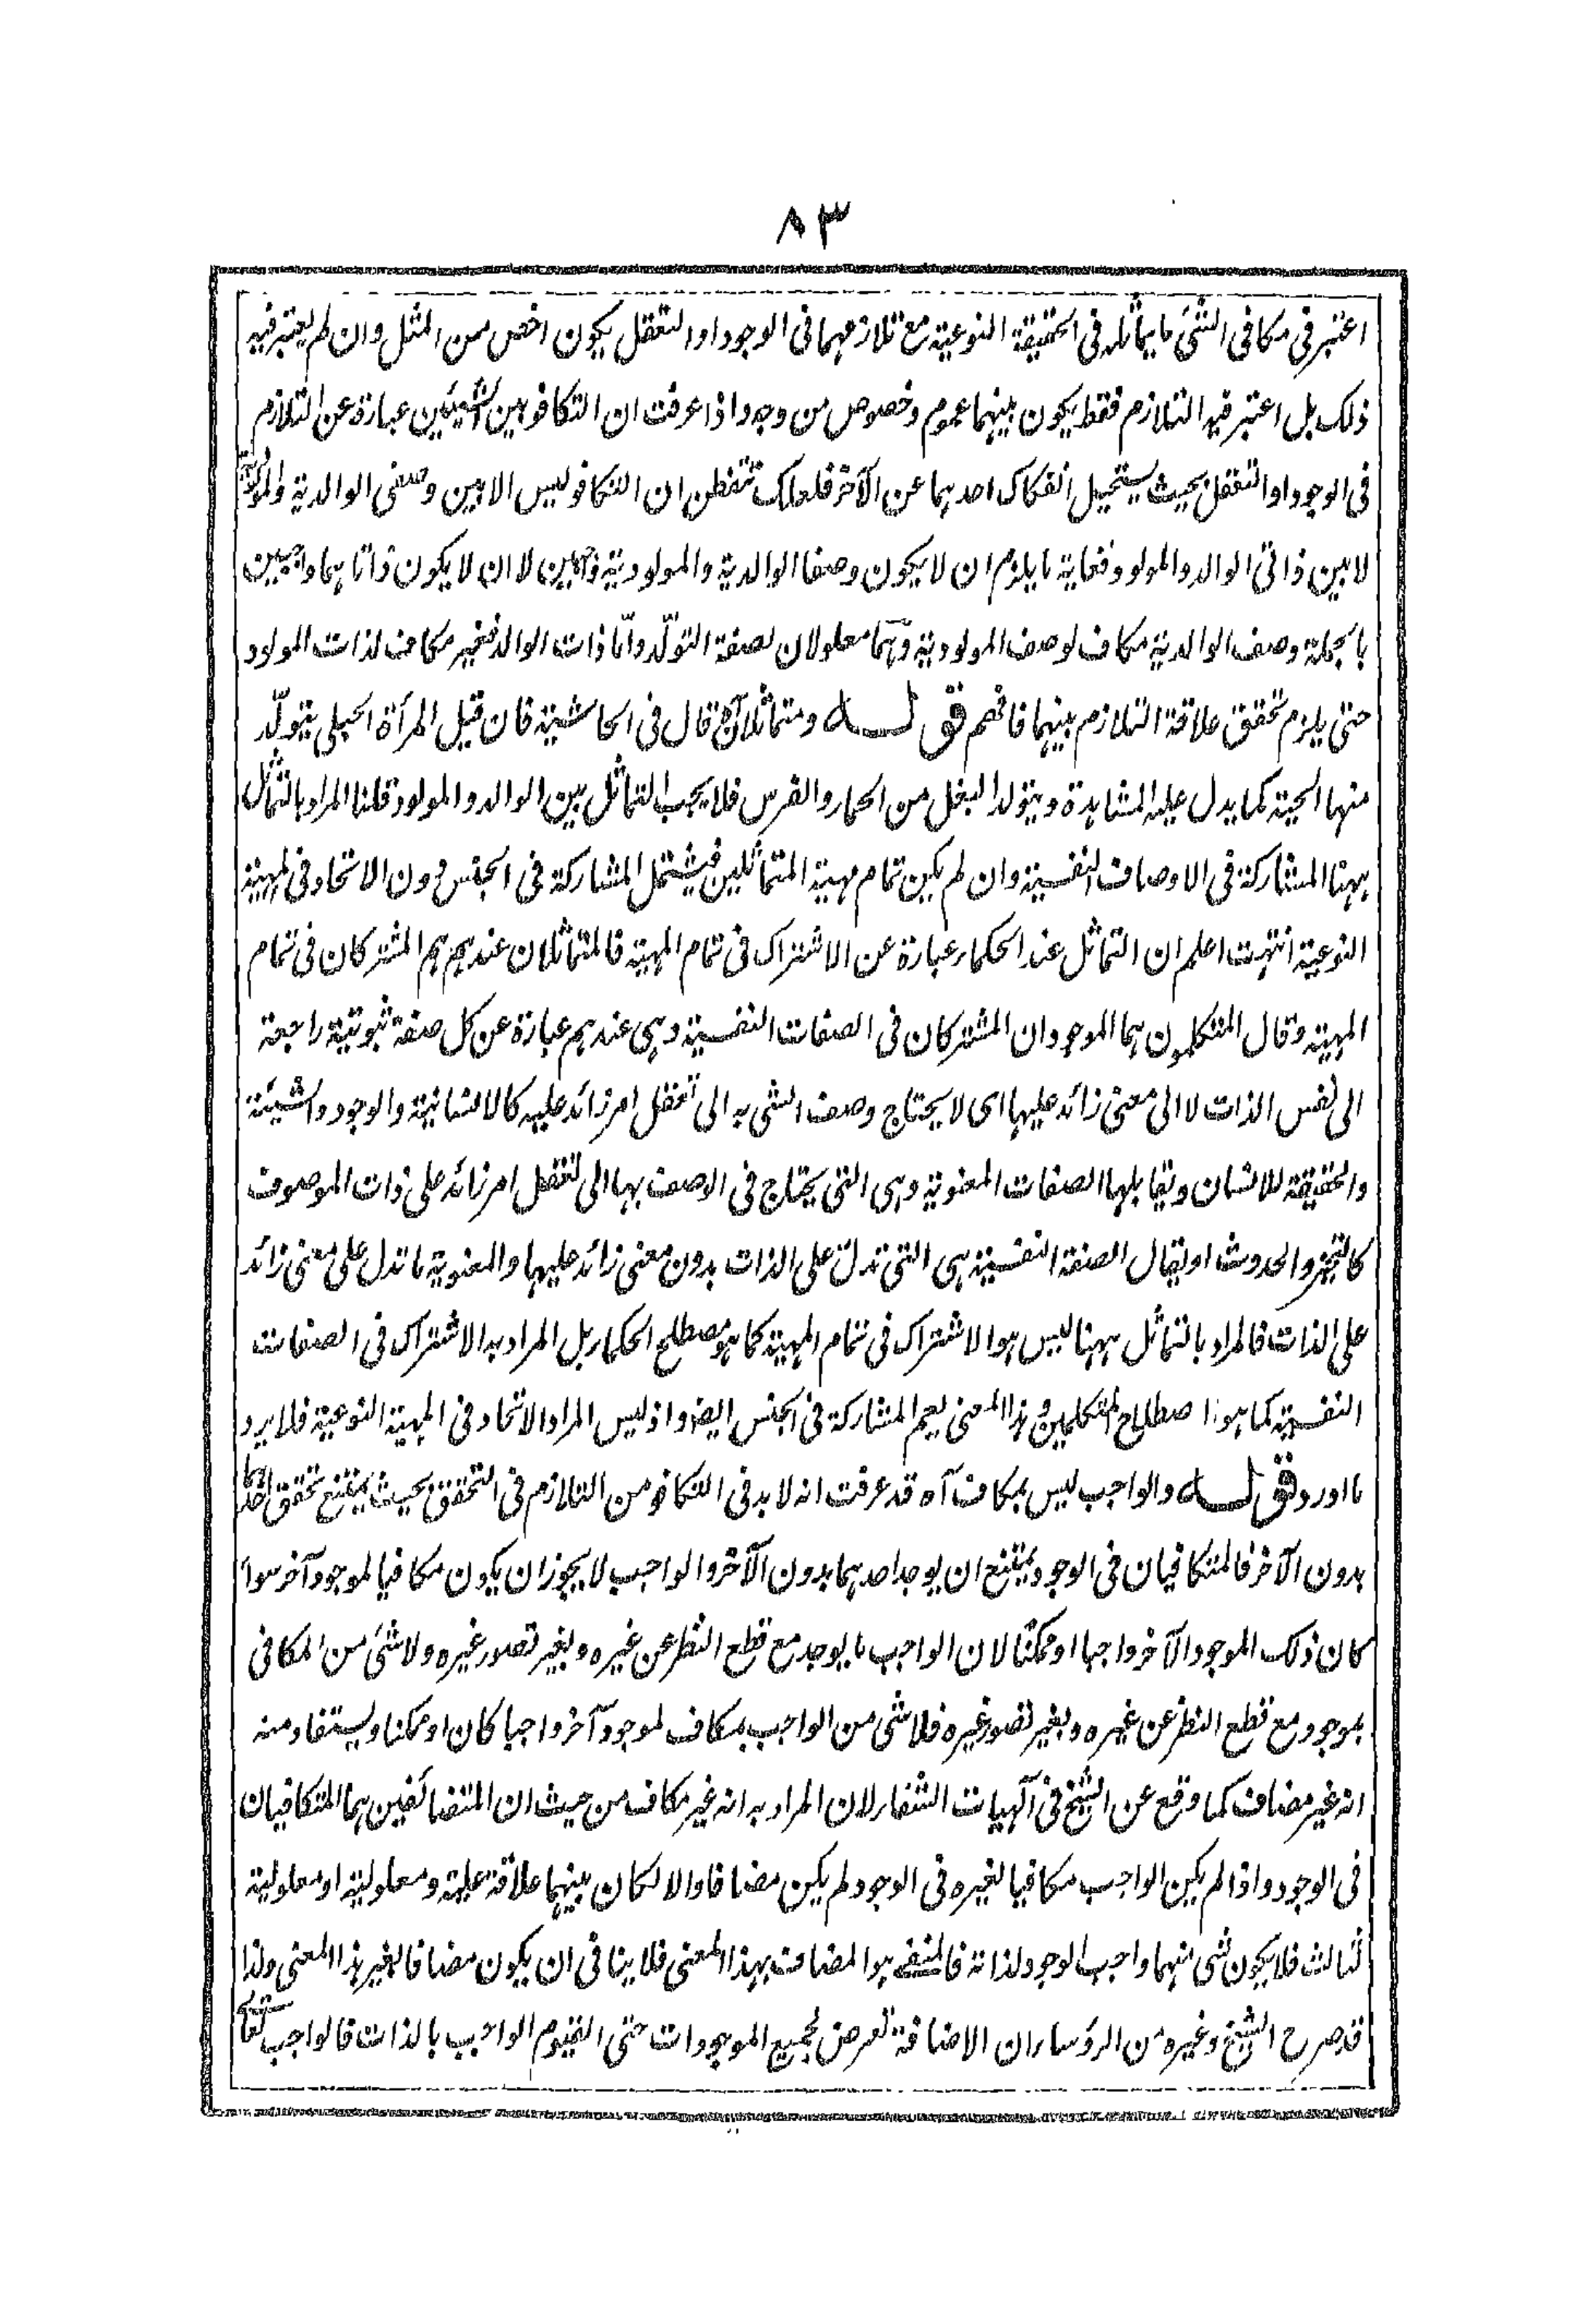 ٨٣
اعتبر فى مكافى الشئ ما يماثله فى الحقيقة النوعية مع تلازمهما فى الوجود او التعقل يكون اخص من المثل وان لم يعتبر فيه
ذلك بل اعتبر فيه التلازم فقط يكون بينهما عموم وخصوص من وجه واذا عرفت ان التكافو بين الشيئين عبارة عن التلازم
فى الوجود او التعقل بحيث يستحيل انفكاك احدهما عن الآخر فلعلك تتفطن ان التكافو ليس الا بين وصفى الوالدية والمولودية
لا بين ذاتى الوالد والمولود فغاية ما يلزم ان لا يكون وصفا الوالدية والمولودية واجبين لا ان لا يكون ذاتاهما واجبين
بالجملة وصف الوالدية مكاف لوصف المولودية وهما معلولان لصفة التولّد وامّا ذات الوالد فغير مكاف لذات المولود
حتى يلزم تحقق علاقة التلازم بينهما فافهم قولـــه ومتماثلان آه قال فى الحاشية فان قيل المرأة الحبلى يتولّد
منها الحية كما يدل عليه المشاهدة ويتولد البغل من الحمار والفرس فلا يجب التماثل بين الوالد والمولود قلنا المراد بالتماثل
ههنا المشاركة فى الاوصاف النفسية وان لم يكن تمام مهية المتماثلين فيشتمل المشاركة فى الجنس دون الاتحاد فى المهية
النوعية انتهت اعلم ان التماثل عند الحكماء عبارة عن الاشتراك فى تمام المهية فالمتماثلان عندهم هم المشتركان فى تمام
المهية وقال المتكلمون هما الموجودان المشتركان فى الصفات النفسية وهى عندهم عبارة عن كل صفة ثبوتية راجعة
الى نفس الذات لا الى معنى زائد عليها اى لا يحتاج وصف الشى به الى تعقل امر زائد عليه كالانسانية والوجود والشيئة
والحقيقة للانسان ويقابلها الصفات المعنوية وهى التى يحتاج فى الوصف بها الى تعقل امر زائد على ذات الموصوف
كالتحيز والحدوث او يقال الصفة النفسية هى التى تدل على الذات بدون معنى زائد عليها والمعنوية ما تدل على معنى زائد
على الذات فالمراد بالتماثل ههنا ليس هو الاشتراك فى تمام المهية كما هو مصطلح الحكماء بل المراد به الاشتراك فى الصفات
النفسية كما هو اصطلاح المتكلمين وهذا المعنى يعم المشاركة فى الجنس ايضا واذ ليس المراد الاتحاد فى المهية النوعية فلا يرد
ما اورد قولـــه والواجب ليس بمكاف آه قد عرفت انه لا بد فى التكافو من التلازم فى التحقق بحيث يمتنع تحقق احدهما
بدون الآخر فالمتكافيان فى الوجود يمتنع ان يوجد احدهما بدون الآخر والواجب لا يجوز ان يكون مكافيا لموجود آخر سواء
كان ذلك الموجود الآخر واجبا او ممكنا لان الواجب ما يوجد مع قطع النظر عن غيره وبغير تصور غيره ولا شئ من المكافى
بموجود مع قطع النظر عن غيره وبغير تصور غيره فلا شى من الواجب بمكاف لموجود آخر واجبا كان او ممكنا ويستفاد منه
انه غير مضاف كما وقع عن الشيخ فى آلهيات الشفاء لان المراد به انه غير مكاف من حيث ان المتضائفين هما المتكافيان
فى الوجود واذا لم يكن الواجب مكافيا لغيره فى الوجود لم يكن مضافا والا لكان بينهما علاقة علية ومعلولية او معلولية
لثالث فلا يكون شى منهما واجب الوجود لذاته فالمنفے هو المضاف بهذا المعنى فلا ينافى ان يكون مضافا لغير هذا المعنى ولذا
قد صرح الشيخ وغيره من الرؤساء ان الاضافة تعرض لجميع الموجودات حتى القيوم الواجب بالذات فالواجب تعالى